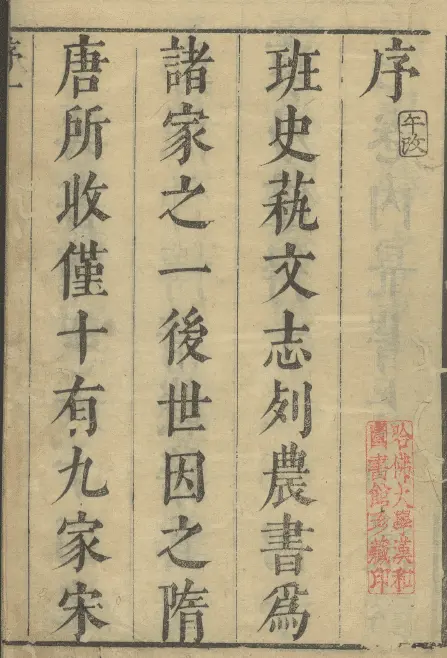 序
哈佛大學漢和
圖書館珍藏印
班史蓺文志列農書爲
諸家之一後世因之隋
唐所收僅十有九家宋
序一